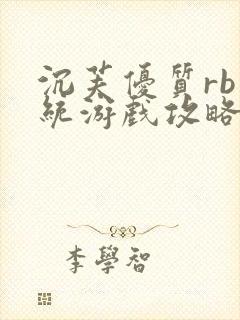 沉芙優質rb
統游戲攻略
李學智